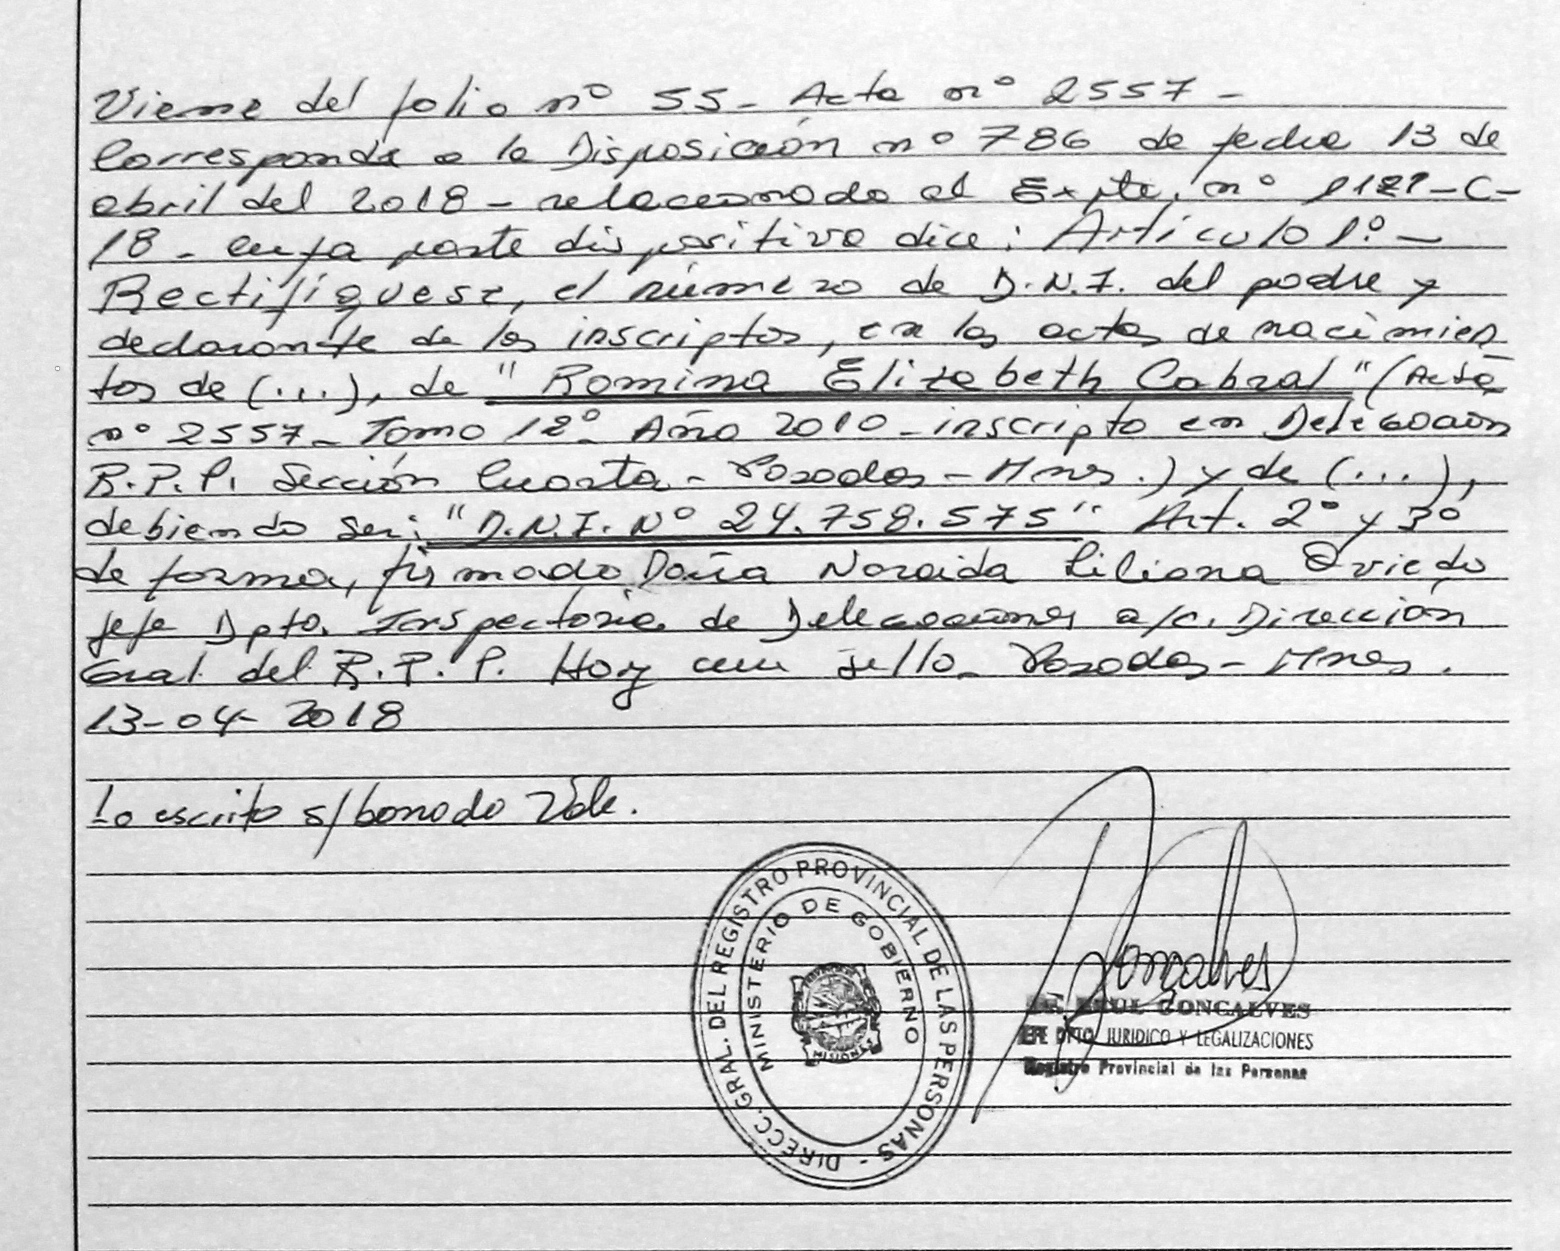 Viene del folio nº 55- Acta nº 2557-
Corresponde a la Disposición nº 786 de fecha 13 de
abril del 2018- relacionado al Expte. nº -C-
18- cuya parte dispositiva dice: Artículo 1º-
Rectifíquese, el número de D.N.I. del padre y
declarante de los inscriptos, en las actas de nacimien
tos de (...), de "Romina Elizabeth Cabral" (Acta
nº 2557- Tomo 12º- Año 2010- inscripta en Delegación
R.P.P. Sección Cuarta- Posadas- Mnes.) y de (...),
debiendo ser: "D.N.I. Nº 24.758.575" Art. 2º y 3º
de forma, firmado Doña Noraida Liliana Oviedo
Jefe Dpto. Inspectoria de Delegaciones a/c. Dirección
Gral. del R.P.P. Hay un sello- Posadas- Mnes.
13-04-2018
Lo escrito s/borrado Vale.
DIRECC. GRAL. DEL REGISTRO PROVINCIAL DE LAS PERSONAS -
MINISTERIO DE GOBIERNO
MISIONES
Goncalves
GONCALVES
JEFE DPTO. JURIDICO Y LEGALIZACIONES
Registro Provincial de las Personas